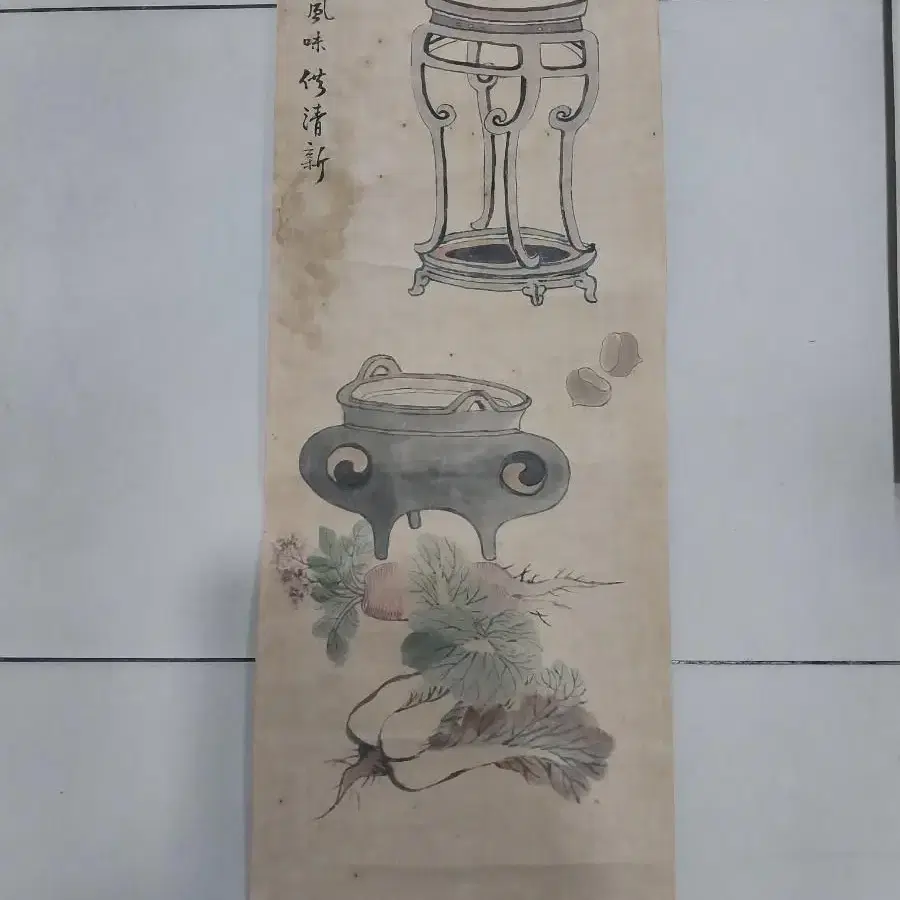 風味供清新